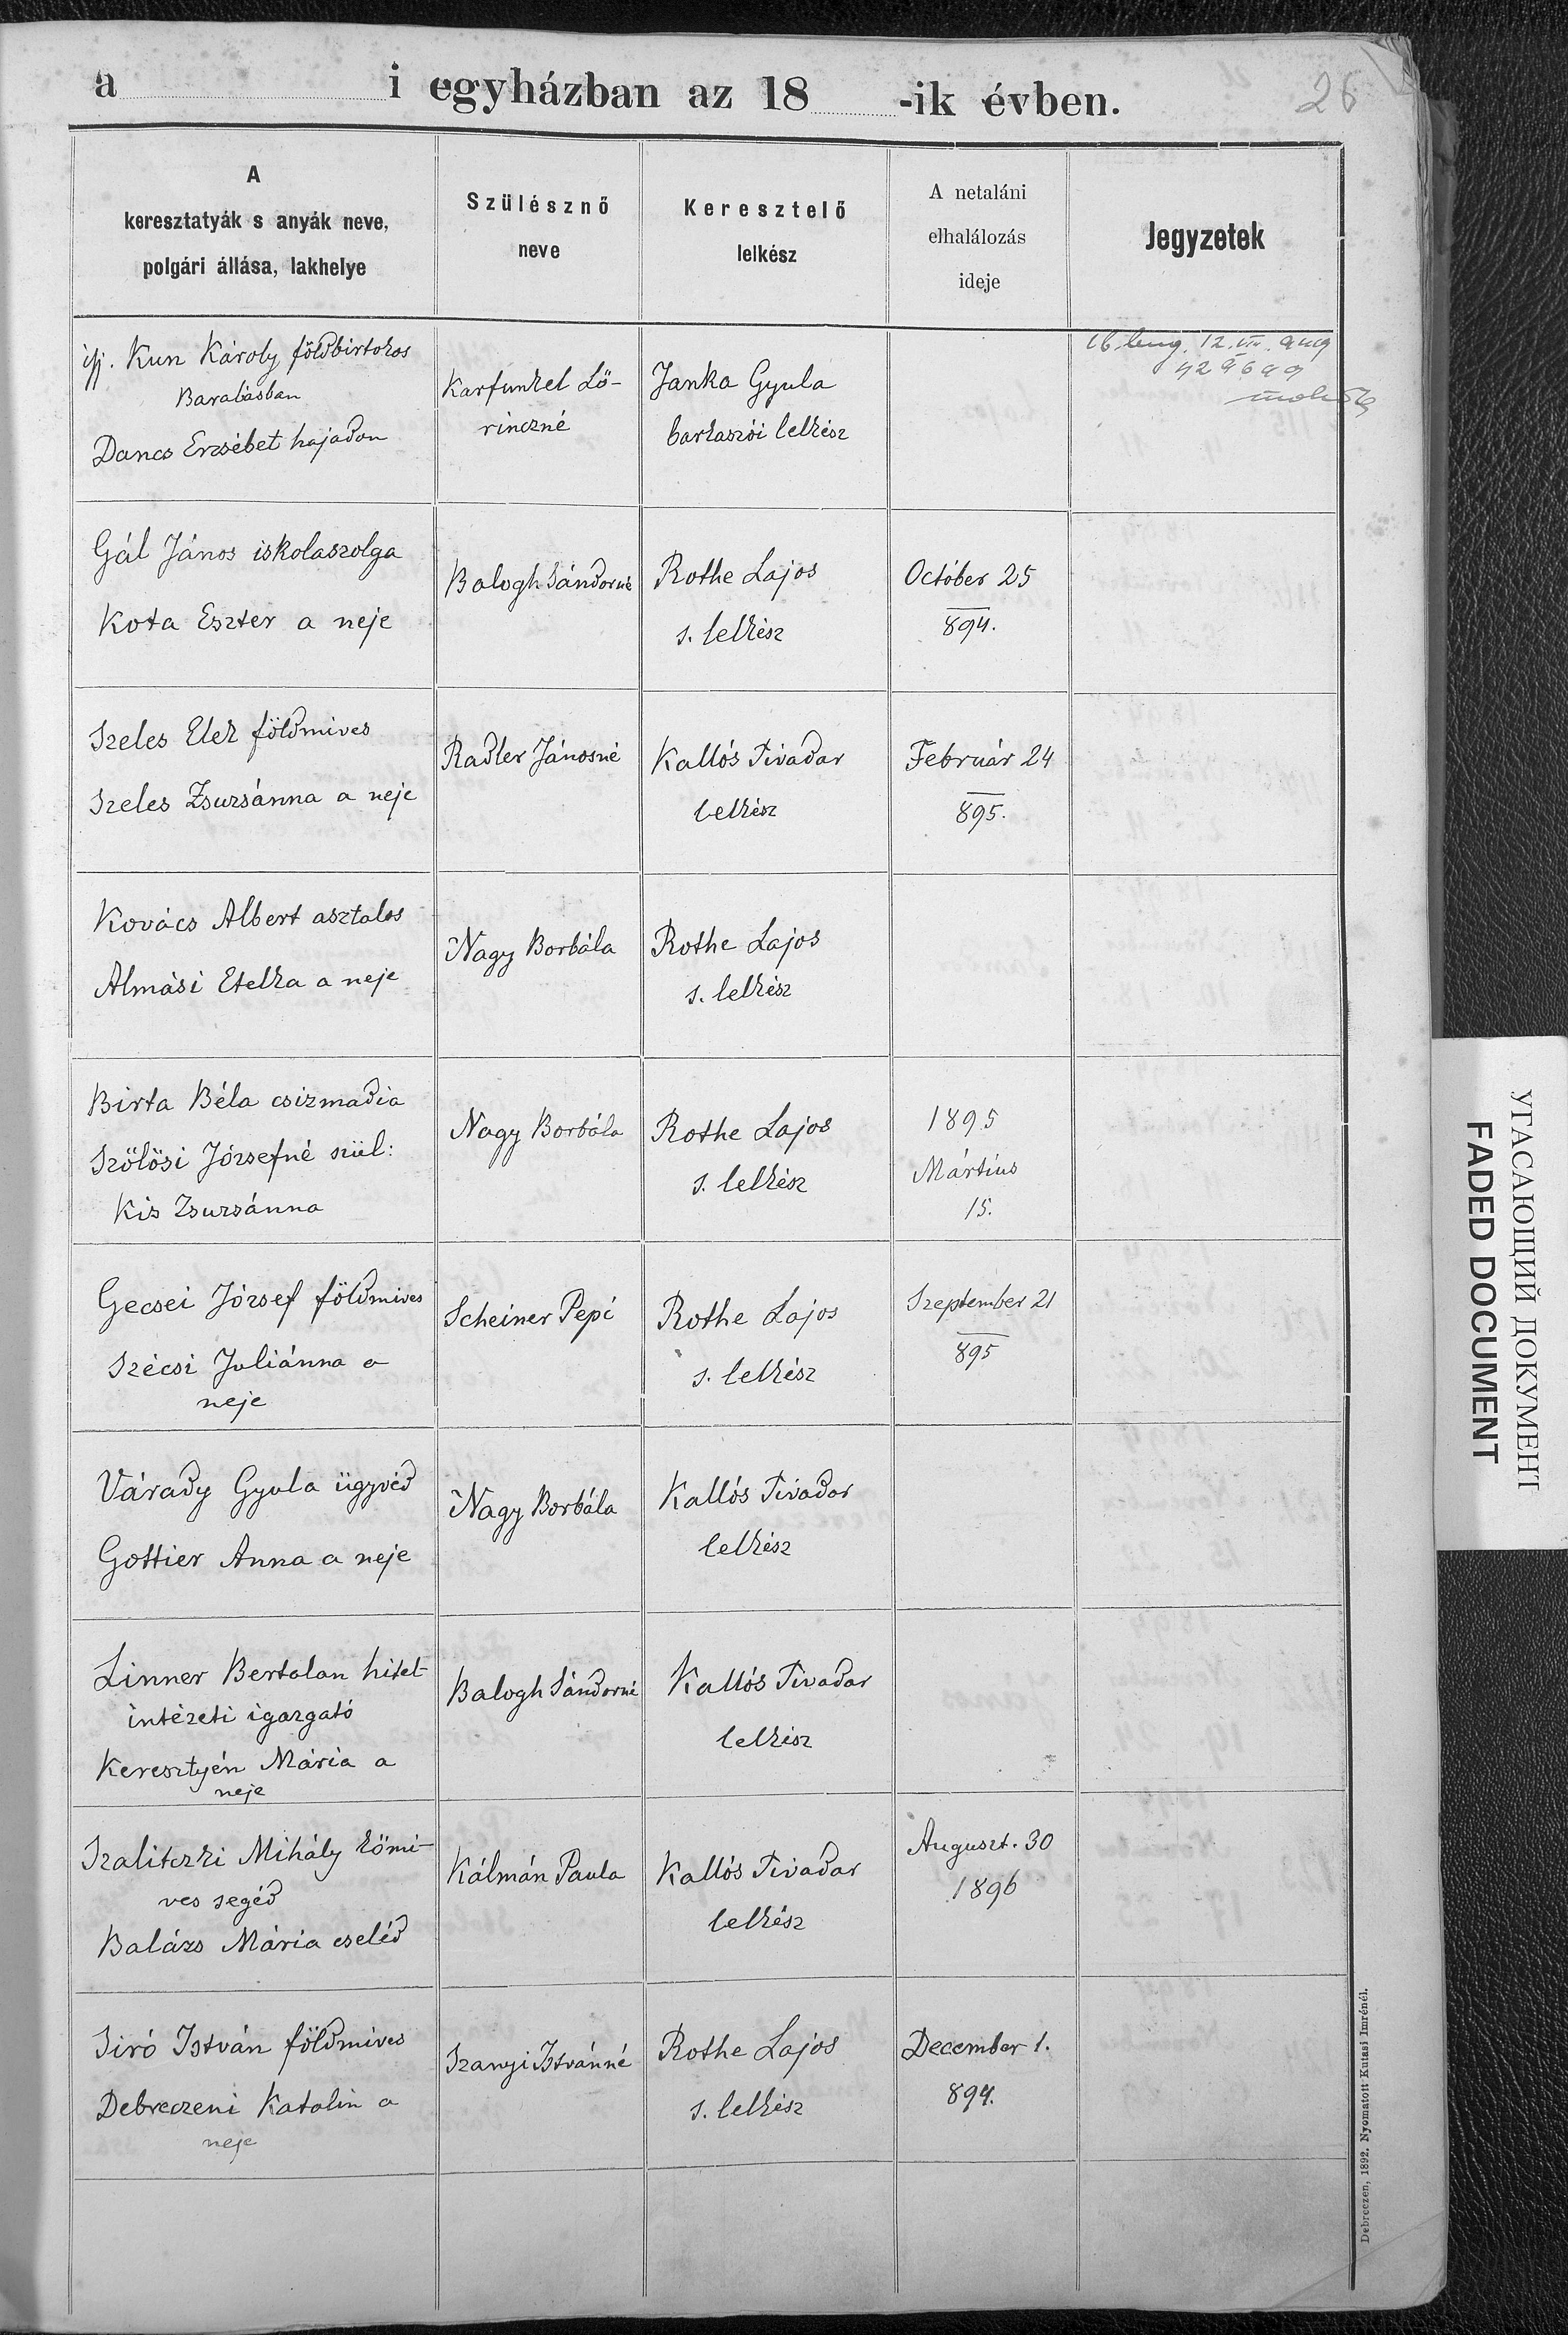 a i egyházban az 18 -ik évben.
26
A
keresztatyák s anyák neve,
polgári állása, lakhelye
Szülésznő
neve
Keresztelő
lelkész
A netaláni
elhalálozás
ideje
Jegyzetek
ifj. Kun Károly földbirtokos
Barabásban
Dancs Erzsébet hajadon
Karfunkel Lő-
rinczné
Janka Gyula
barkaszói lelkész
12. VII.
Gál János iskolaszolga
Kota Eszter a neje
Balogh Sándorné
Rothe Lajos
s. lelkész
Octóber 25
894.
Szeles Elek földmives
Szeles Zsuzsánna a neje
Radler Jánosné
Kallós Tivadar
lelkész
Február 24
895.
Kovács Albert asztalos
Almási Etelka a neje
Nagy Borbála
Rothe Lajos
s. lelkész
Birta Béla csizmadia
Szőlősi Józsefné szül:
Kis Zsuzsánna
Nagy Borbála
Rothe Lajos
s. lelkész
1895
Mártius
15.
Gecsei József földmives
Szécsi Juliánna a
neje
Scheiner Pepi
Rothe Lajos
s. lelkész
Szeptember 21
895
Várady Gyula ügyvéd
Gottier Anna a neje
Nagy Borbála
Kallós Tivadar
lelkész
Linner Bertalan hitel-
intézeti igazgató
Keresztyén Mária a
neje
Balogh Sándorné
Kallós Tivadar
lelkész
Szaliczki Mihály kőmi-
ves segéd
Balázs Mária cseléd
Kálmán Paula
Kallós Tivadar
lelkész
Auguszt. 30
1896
Siró István földmives
Debreczeni Katalin a
neje
Szanyi Istvánné
Rothe Lajos
s. lelkész
December 1.
894.
Debreczen, 1892. Nyomatott Kutasi Imrénél.
УГАСАЮЩИЙ ДОКУМЕНТ
FADED DOCUMENT